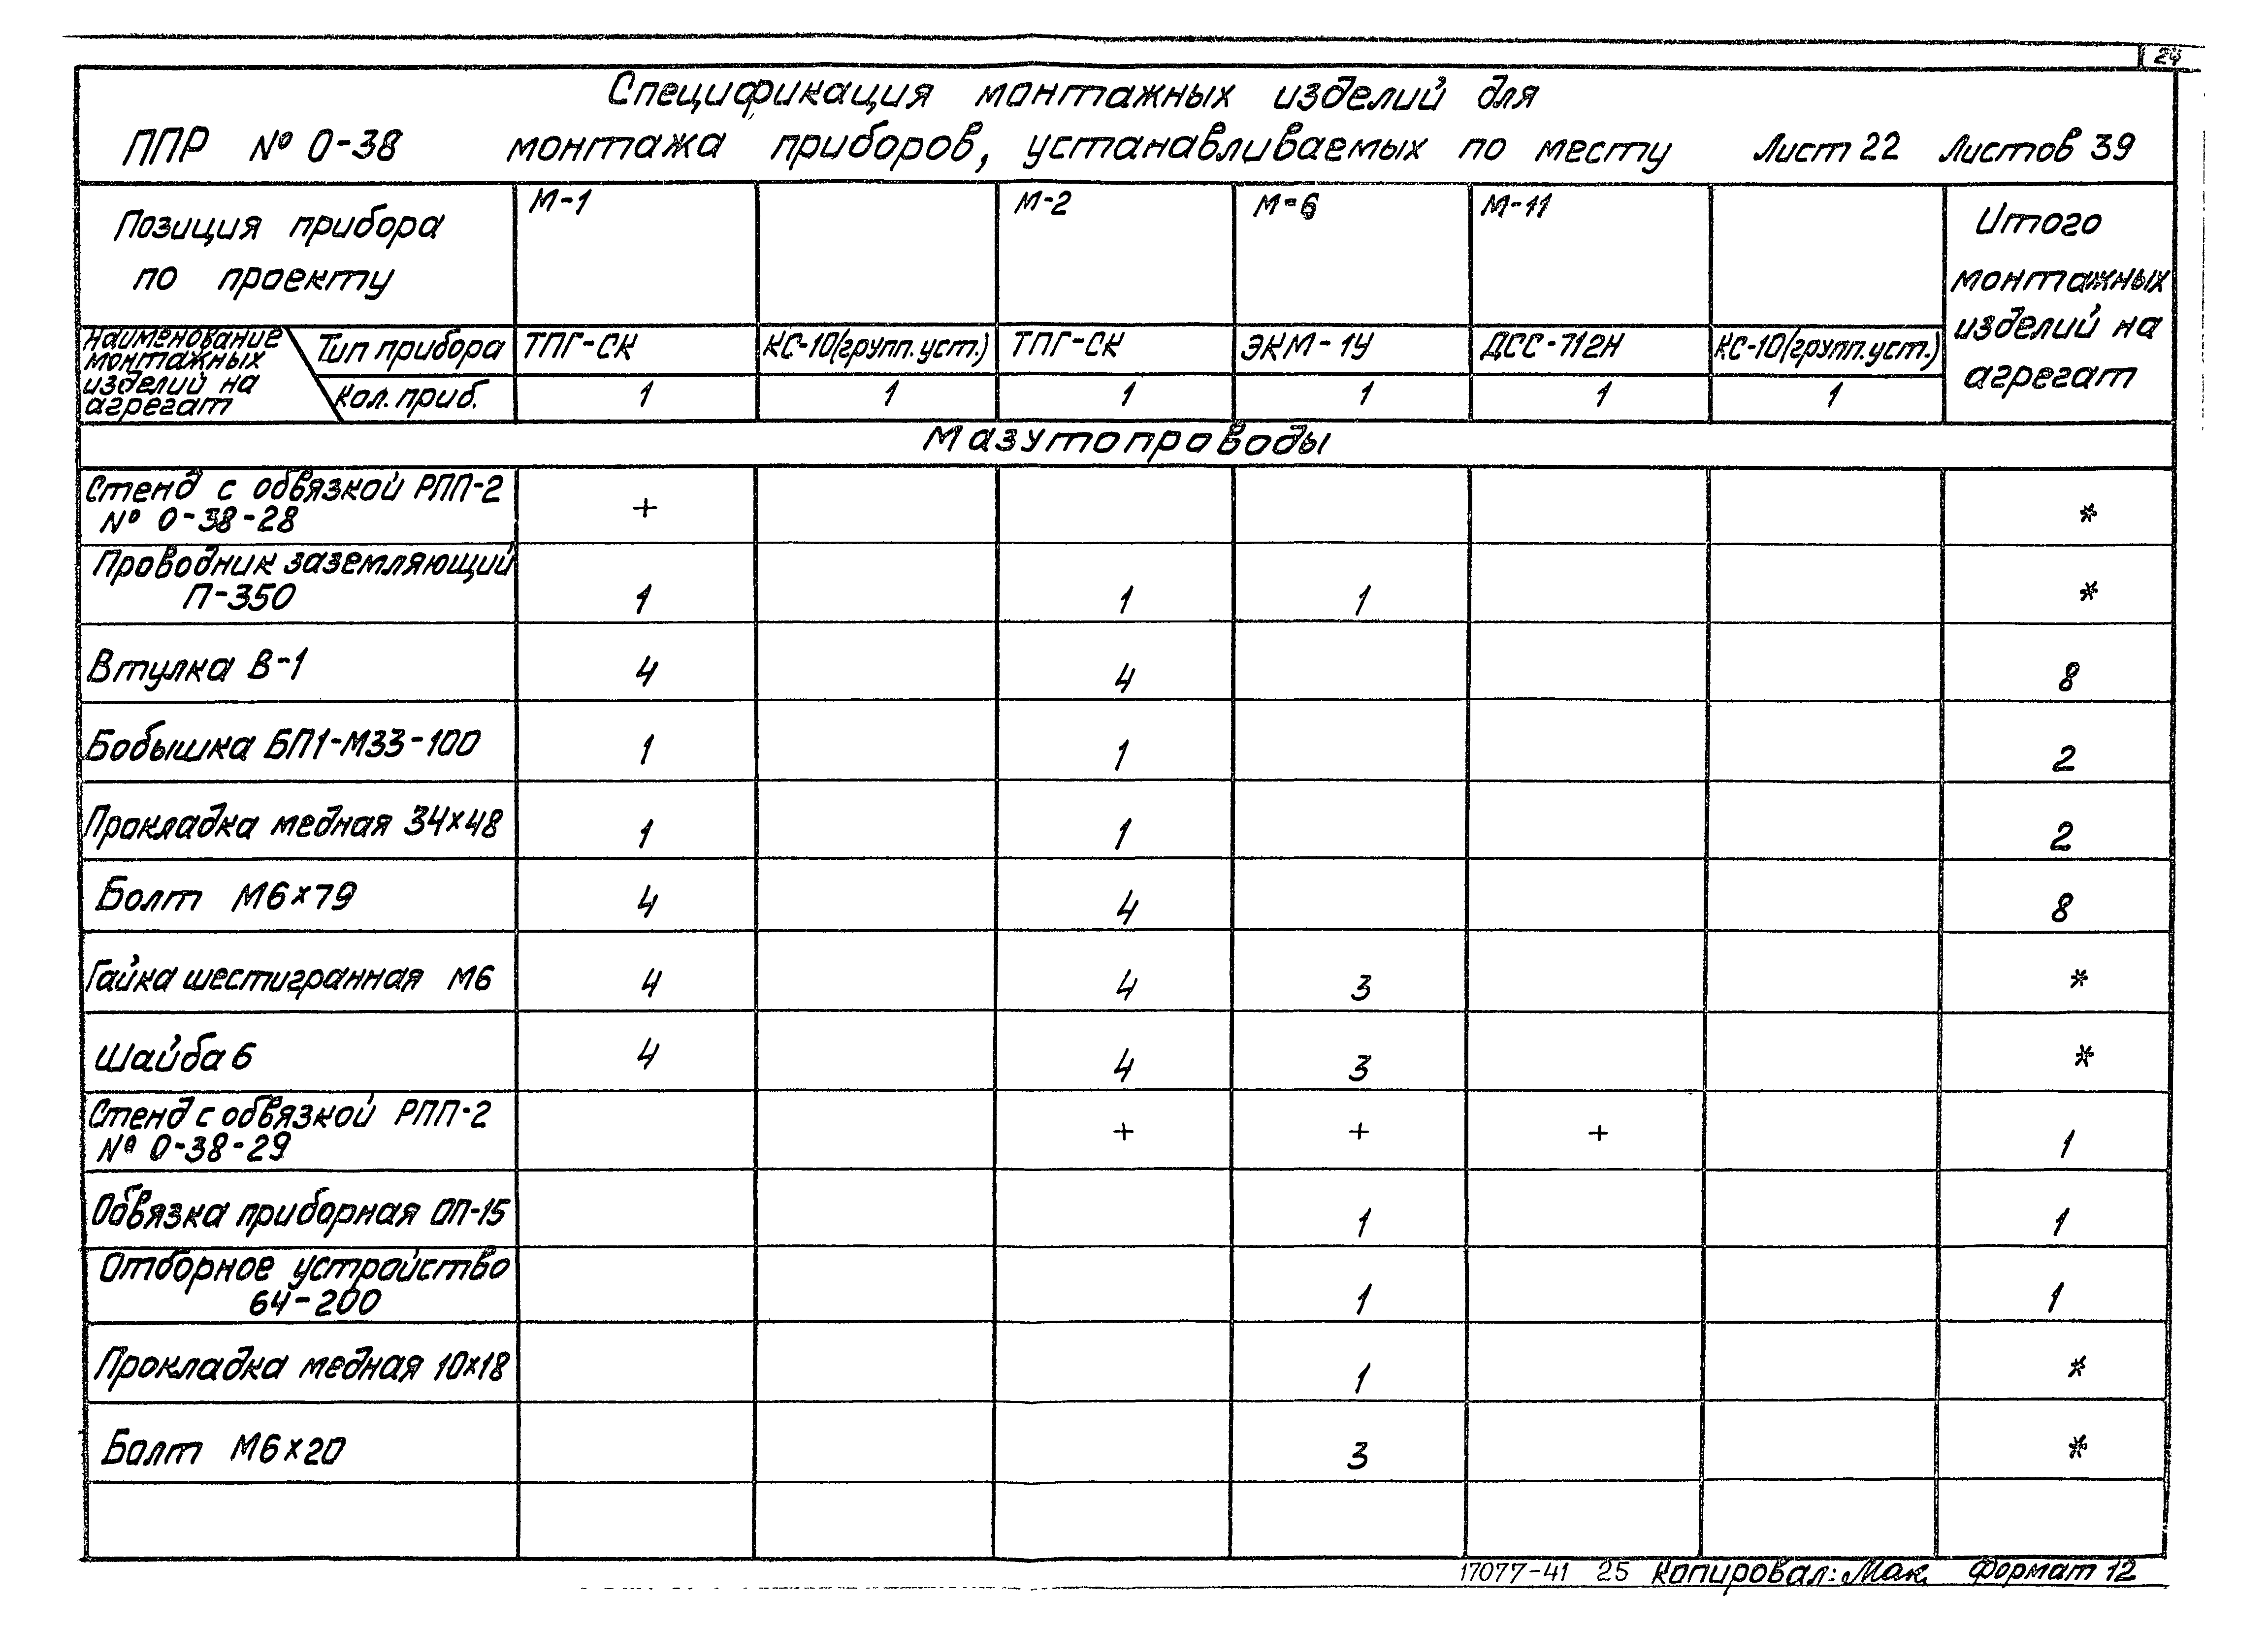 24
Спецификация монтажных изделий для
ППР № 0-38 монтажа приборов, устанавливаемых по месту Лист 22 Листов 39
Позиция прибора по проекту М-1 М-2 М-6 М-11 Итого монтажных изделий на агрегат
Наименование монтажных изделий на агрегат
Тип прибора ТПГ-СК КС-10(групп.уст.) ТПГ-СК ЭКМ-1У ДСС-712Н КС-10(групп.уст.)
Кол. приб. 1 1 1 1 1 1
Мазутопроводы
Стенд с обвязкой РПП-2
№ 0-38-28 + *
Проводник заземляющий
П-350 1 1 1 *
Втулка В-1 4 4 8
Бобышка БП1-М33-100 1 1 2
Прокладка медная 34х48 1 1 2
Болт М6х79 4 4 8
Гайка шестигранная М6 4 4 3 *
Шайба 6 4 4 3 *
Стенд с обвязкой РПП-2
№ 0-38-29 + + + 1
Обвязка приборная ОП-15 1 1
Отборное устройство
64-200 1 1
Прокладка медная 10х18 1 *
Болт М6х20 3 *
17077-41 25 Копировал: Мак. Формат 12